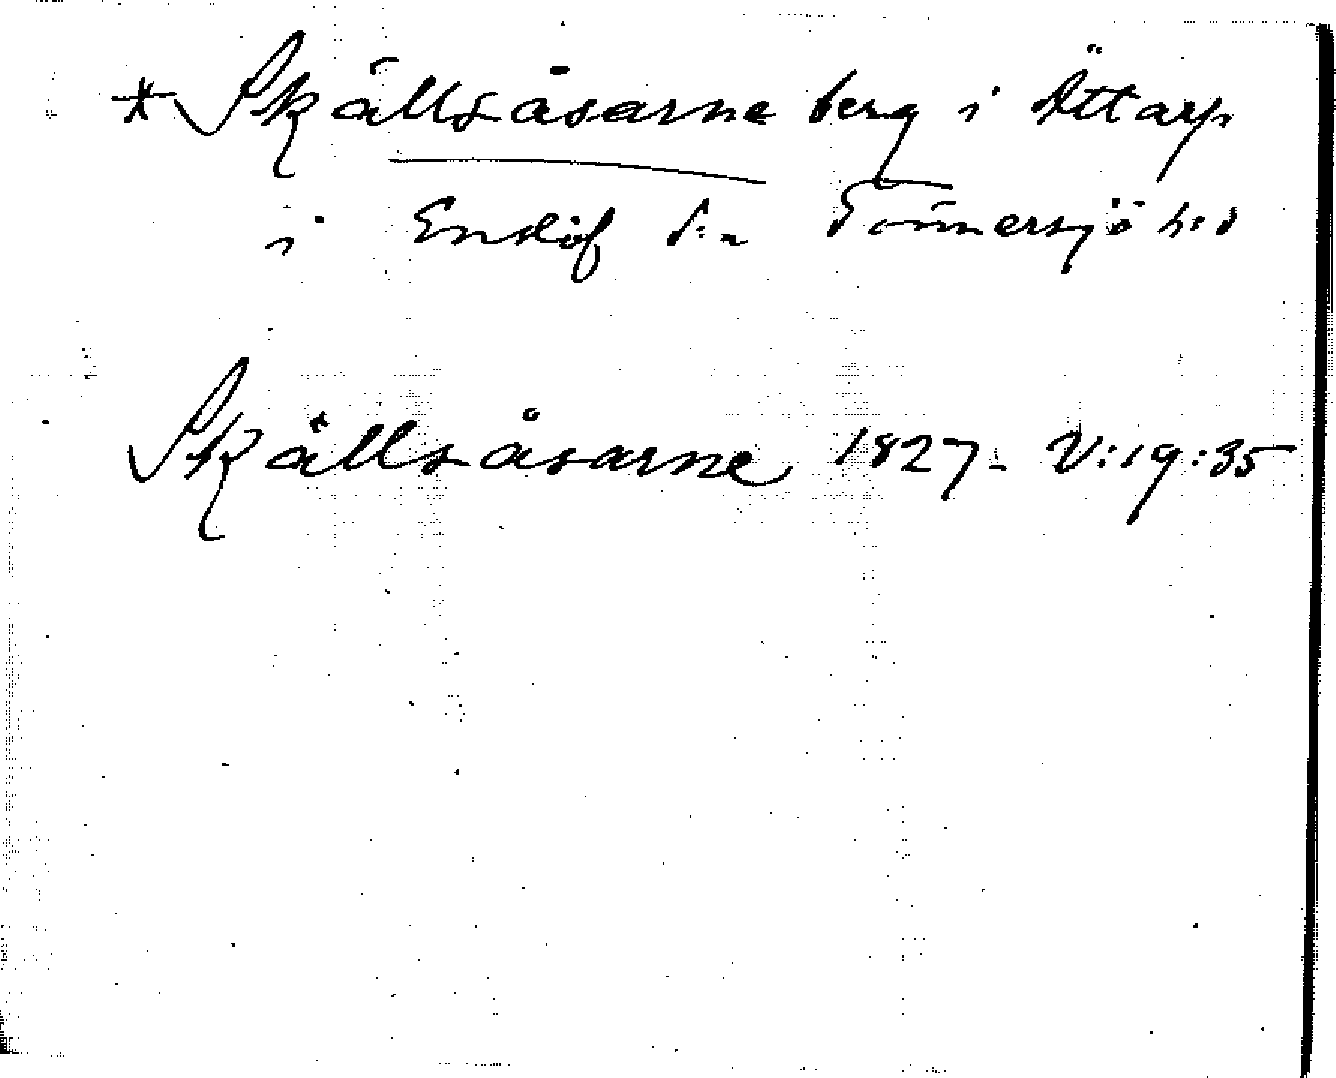 * Skällsåsarne berg i Ättarp
i Enslöf s:n Tönnersjö h:d
Skällsåsarne 1827 - V:19:35